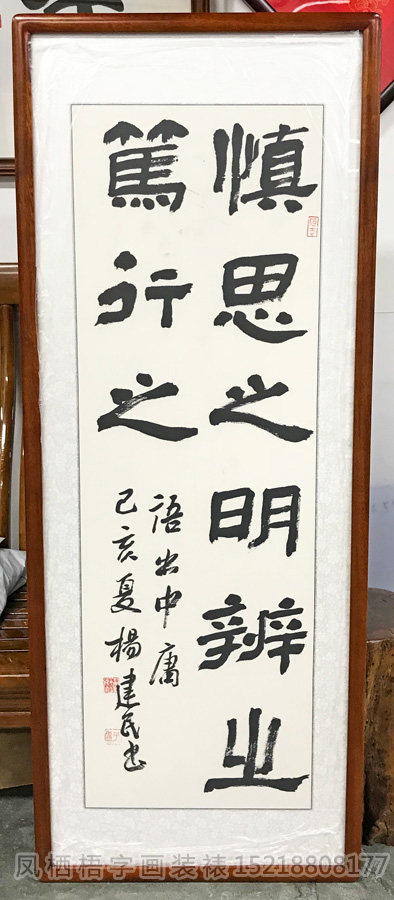 慎思之明辨之
篤行之
语出中庸
己亥夏楊建民书
凤栖梧字画装裱15218808177